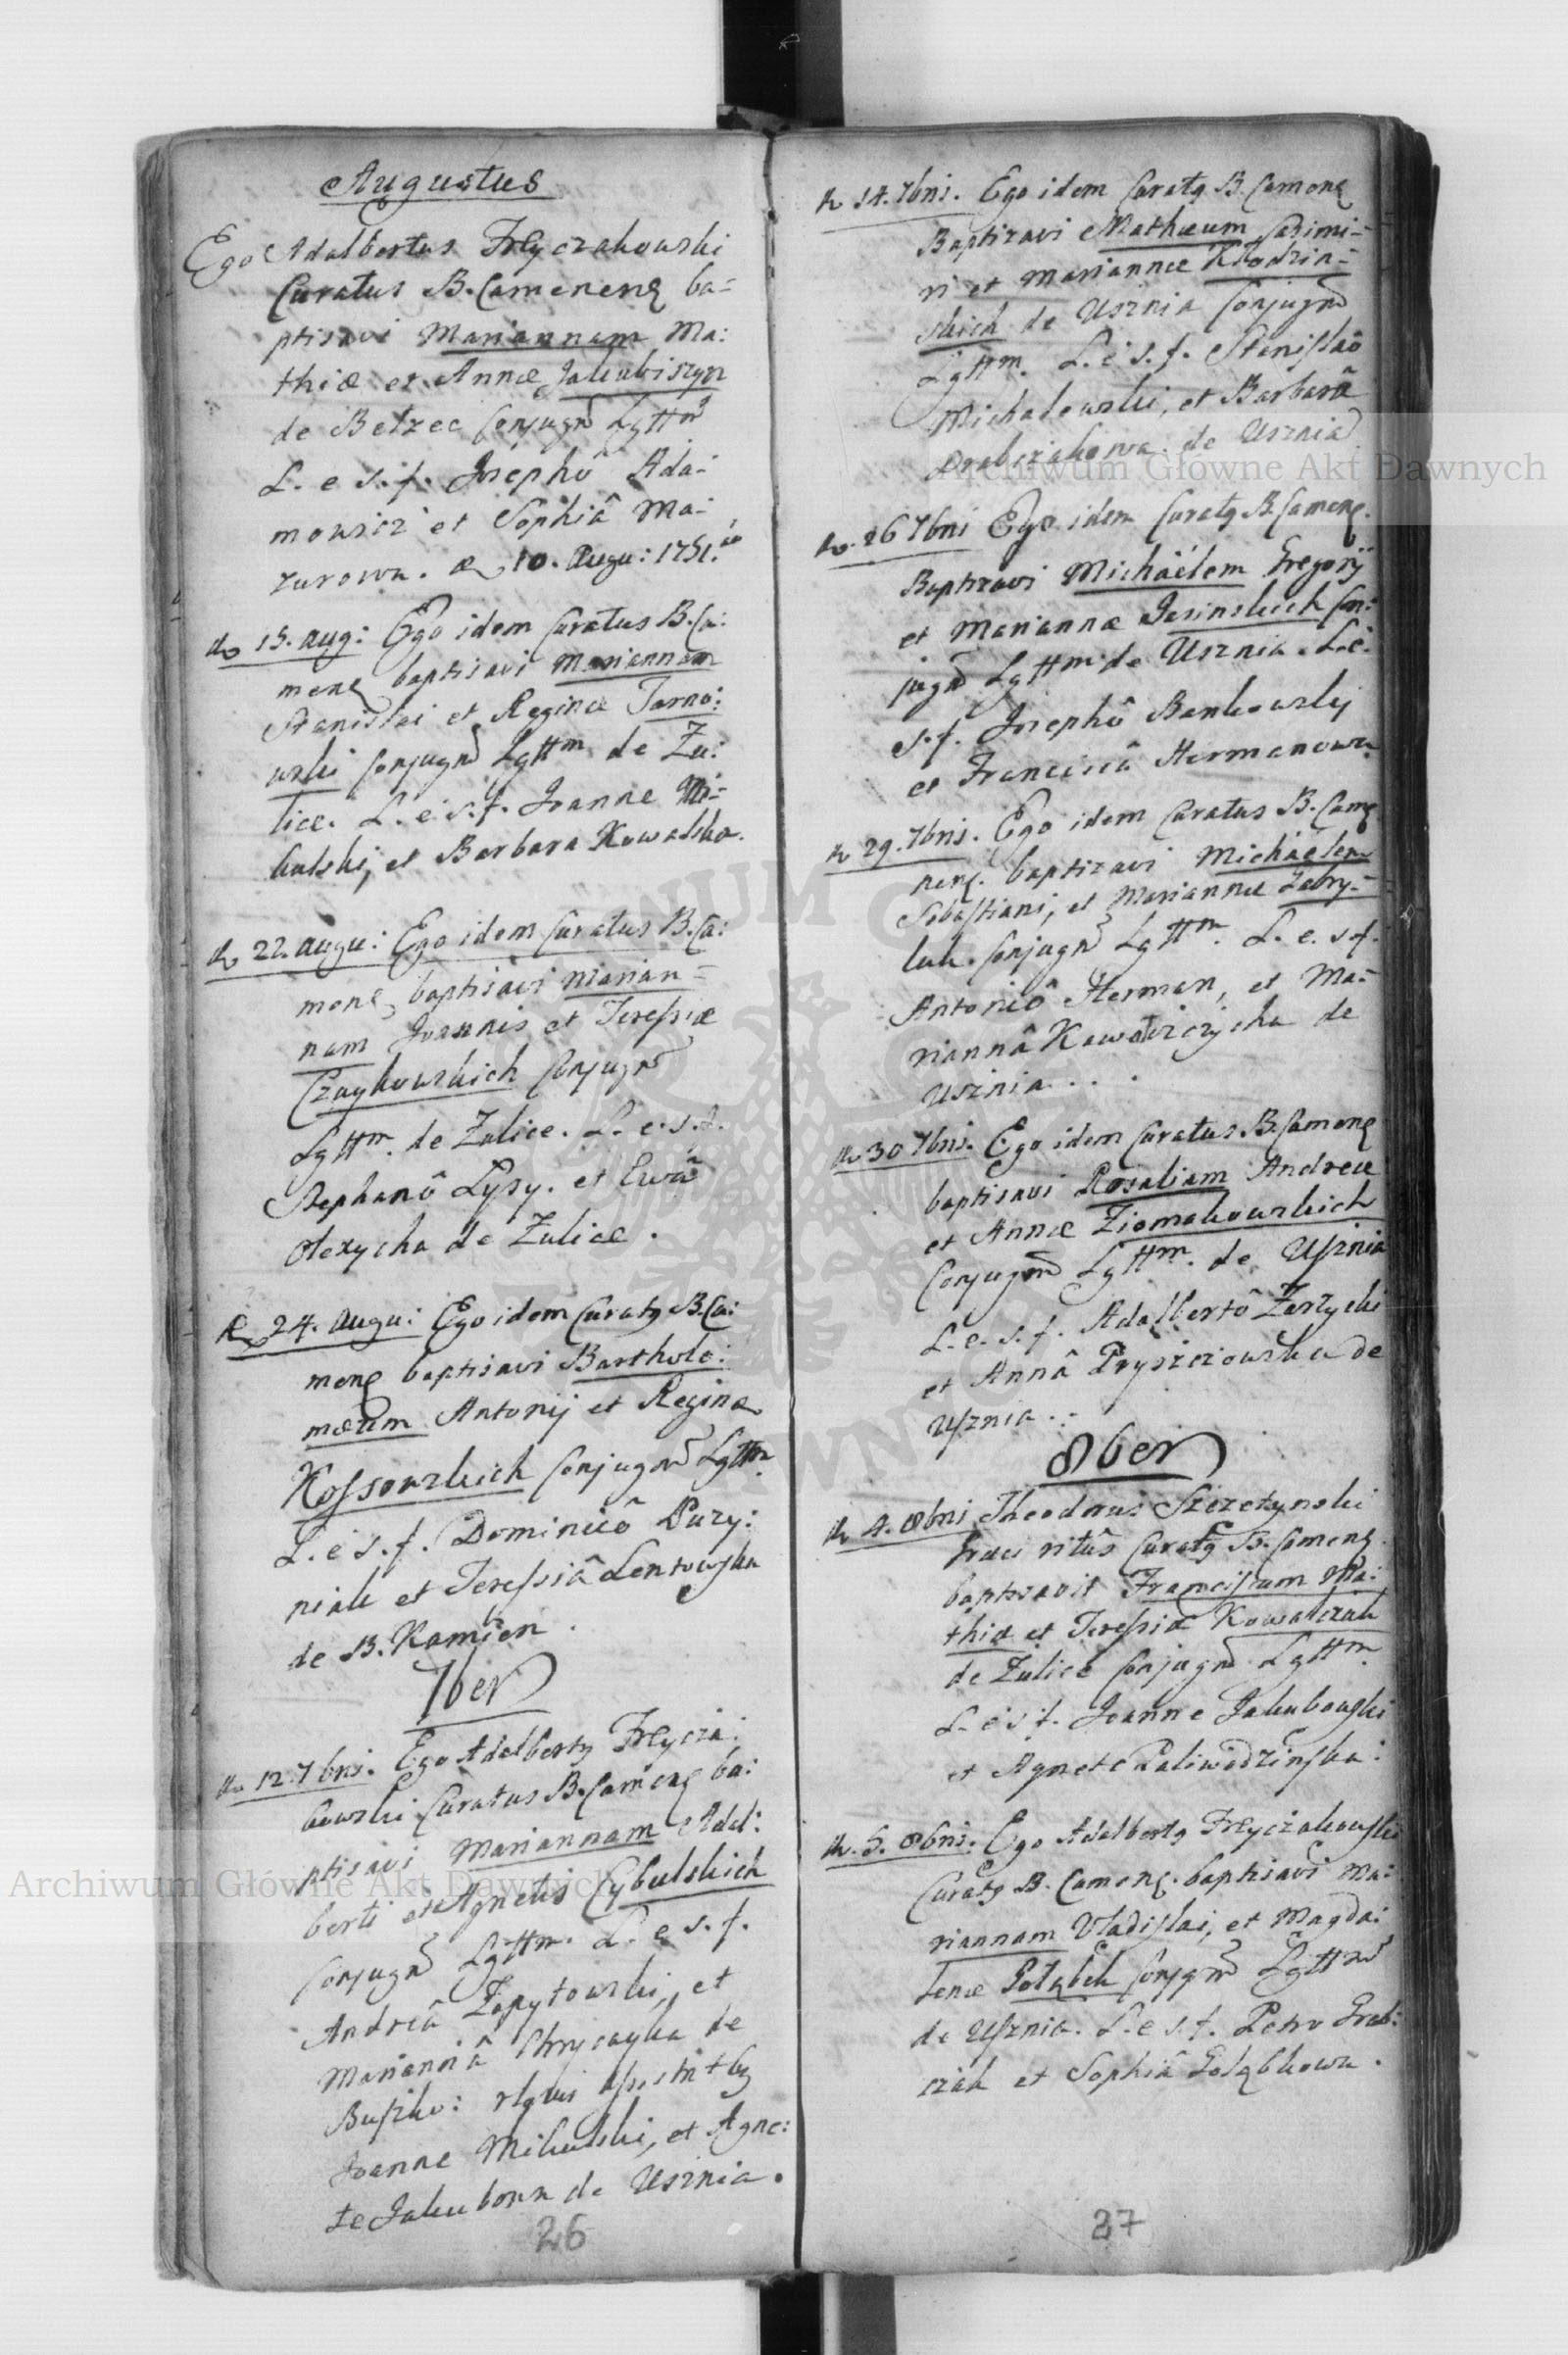 Augustus
Ego Adalbertus Freyczakowski
Curatus B. Camenens ba=
ptisavi Mariannam Ma:
thiæ et Annæ Jakubiszyn
de Bełzec Conjugū Lgttmō
L. e s. f. Josephô Ada:
mowicz et Sophiâ Ma:
zurowa. 10. Augu: 1751.
15. aug: Ego idem Curatus B. Ca:
mens baptisavi Mariannam
Stanislai et Reginæ Tarno:
wski Conjugū Lgttm de Zu:
lice. L. e. s. f. Joanne Mi=
kulski, et Barbara Kowalska.
22. augu: Ego idem Curatus B. Ca:
mens baptisavi Marian=
nam Joannis et Teressiæ
Czaykowskich Conjugū
Lgttm. de Zulice. L. e. s. f.
Stephanô Lysy. et Ewâ
Olexycha de Zulice.
24. augu: Ego idem Curatg B. Ca:
mens baptisavi Bartholo:
mæum Antonij et Reginæ
Kossowskich Conjugū Lgttm.
L. e s. f. Dominicô Puzy:
niak et Teressiâ Lentowska
de B. Kamien.
7ber
12. 7bris. Ego Adalbertg Freycza:
kowski Curatus B. Camens ba:
ptisavi Mariannam Adal:
berti et Agnetis Cybulskich
Conjugū Lgttm. L. e s. f.
Andreâ Zapytowski, et
Mariannâ Chrycayka de
Busko:
Joanne Mikulski, et Agne:
te Jakubowa de Usznia.
26
14. 7bris. Ego idem Curatg B. Camens
Baptizavi Mathæum Casimi=
ri et Mariannæ Kłodzin=
skich de Usznia Conjugū
Lgttm. L. e s. f. Stanislaô
Michalowski, et Barbarâ
Drabczakowa. de Usznia
26 7bris Ego idem Curatg B. Camens.
Baptizavi Michäelem Gregorij
et Mariannæ Jasinskich Con:
jugū Lgttm. de Usznia. L. e.
s. f. Josephô Bankowskj
et Franciscâ Hermanowa
29. 7bris. Ego idem Curatus B. Came
nens. baptizavi Michäelem
Sebastiani, et Mariannæ Zabry=
luk. Conjugū Lgttm. L. e. s. f.
Antoniô Herman, et Ma=
riannâ Kowalczycha de
Usznia...
30 7bris. Ego idem Curatus B. Camens
baptisavi Rosaliam Andreæ
et Annæ Ziomakowskich
Conjugū Lgttm. de Usznia
L. e. s. f. Adalbertô Zarzycki
et Annâ Pryszczowska de
Usznia..
8ber
4. 8bris Theodorus Szczetynski
Græci ritûs Curatg B. Camens.
baptisavit Franciscum Ma:
thiæ et Teressiæ Kowalczak
de Zulice Conjugū Lgttm.
L. e s f. Joanne Jakubowski
et Agnete Paliwodzinska.
5. 8bris. Ego Adalbertg Freyczakowski
Curatg B. Camens. baptisavi Ma:
riannam Vladislai, et Magda:
lenæ Gołąbek Conjugū Lgttm
de Usznia. L. e s. f. Petro Grab:
czak et Sophiâ Gołąbkowa.
27
Archiwum Główne Akt Dawnych
Archiwum Główne Akt Dawnych